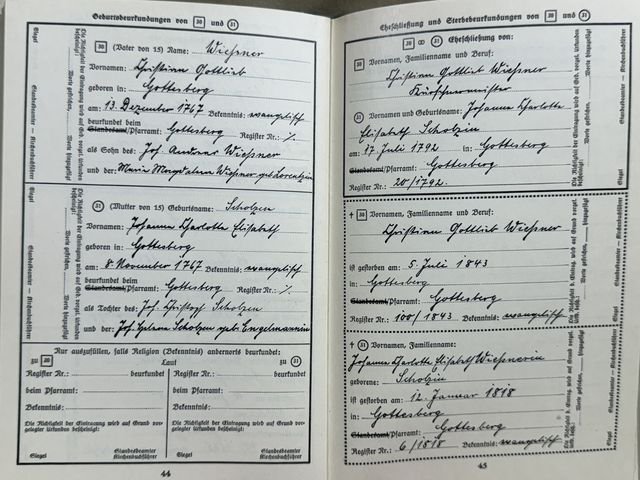 Geburtsbeurkundungen von 30 und 31
30 (Vater von 15) Name: Wiesner
Vornamen: Christian Gottlieb
geboren in: Gottesberg
am: 13. Dezember 1767 Bekenntnis: evangelisch
beurkundet beim
Standesamt/Pfarramt: Gottesberg Register Nr.: %
als Sohn des: Joh. Andreas Wiesner
und der: Maria Magdalena Wiesner geb. Lorentzin
Siegel
Die Richtigkeit der Eintragung wird auf Grund vorgel. Urkunden bescheinigt:
Worte gestrichen, Worte hinzugefügt
Standesbeamter – Kirchenbuchführer
31 (Mutter von 15) Geburtsname: Scholzen
Vornamen: Johanna Charlotte Elisabeth
geboren in: Gottesberg
am: 8. November 1767 Bekenntnis: evangelisch
beurkundet beim
Standesamt/Pfarramt: Gottesberg Register Nr.: %
als Tochter des: Joh. Christoph Scholzen
und der: Joh. Helena Scholzen geb. Engelmannin
Siegel
Die Richtigkeit der Eintragung wird auf Grund vorgel. Urkunden bescheinigt:
Worte gestrichen, Worte hinzugefügt
Standesbeamter – Kirchenbuchführer
Nur auszufüllen, falls Religion (Bekenntnis) anderorts beurkundet:
zu 30 Laut zu 31
Register Nr.: beurkundet Register Nr.: beurkundet
beim Pfarramt: beim Pfarramt:
Bekenntnis: Bekenntnis:
Die Richtigkeit der Eintragung wird auf Grund vorgelegter Urkunden bescheinigt: Die Richtigkeit der Eintragung wird auf Grund vorgelegter Urkunden bescheinigt:
Siegel Standesbeamter Kirchenbuchführer Siegel Standesbeamter Kirchenbuchführer
44
Eheschließung und Sterbebeurkundungen von 30 und 31
30 ∞ 31 Eheschließung von:
30 Vornamen, Familienname und Beruf:
Christian Gottlieb Wiesner
Kürschnermeister
31 Vornamen und Geburtsname: Johanna Charlotte
Elisabeth Scholzin
am: 17. Juli 1792 in: Gottesberg
Standesamt/Pfarramt: Gottesberg
Register Nr.: 20/1792.
Siegel
Standesbeamter – Kirchenbuchführer
† 30 Vornamen, Familienname und Beruf:
Christian Gottlieb Wiesner
ist gestorben am: 5. Juli 1843
in: Gottesberg
Standesamt/Pfarramt: Gottesberg
Register Nr.: 100/1843 Bekenntnis: evangelisch
† 31 Vornamen, Familienname:
Johanna Charlotte Elisabeth Wiesnerin
geborene: Scholzin
ist gestorben am: 12. Januar 1818
in: Gottesberg
Standesamt/Pfarramt: Gottesberg
Register Nr.: 6/1818 Bekenntnis: evangelisch
45